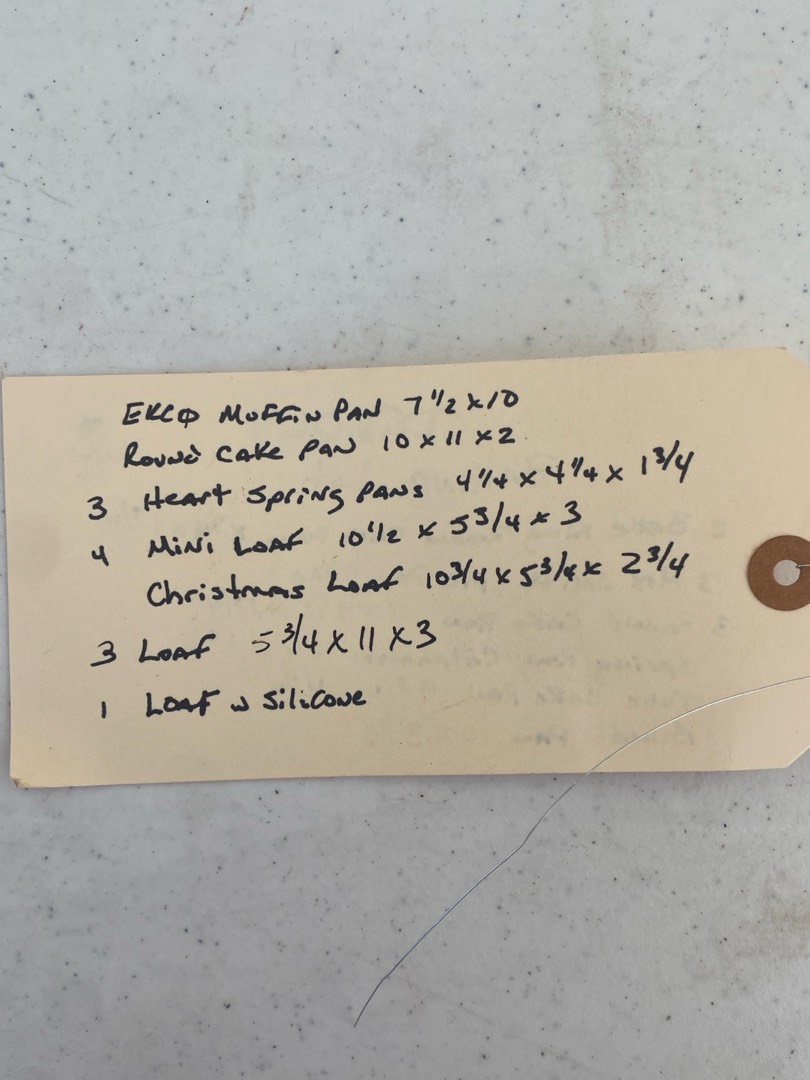 EKCO MUFFIN PAN 7 1/2 x 10
Round Cake Pan 10 x 11 x 2
3 Heart Spring Pans 4 1/4 x 4 1/4 x 1 3/4
4 Mini Loaf 10 1/2 x 5 3/4 x 3
Christmas Loaf 10 3/4 x 5 3/4 x 2 3/4
3 Loaf 5 3/4 x 11 x 3
1 Loaf w Silicone